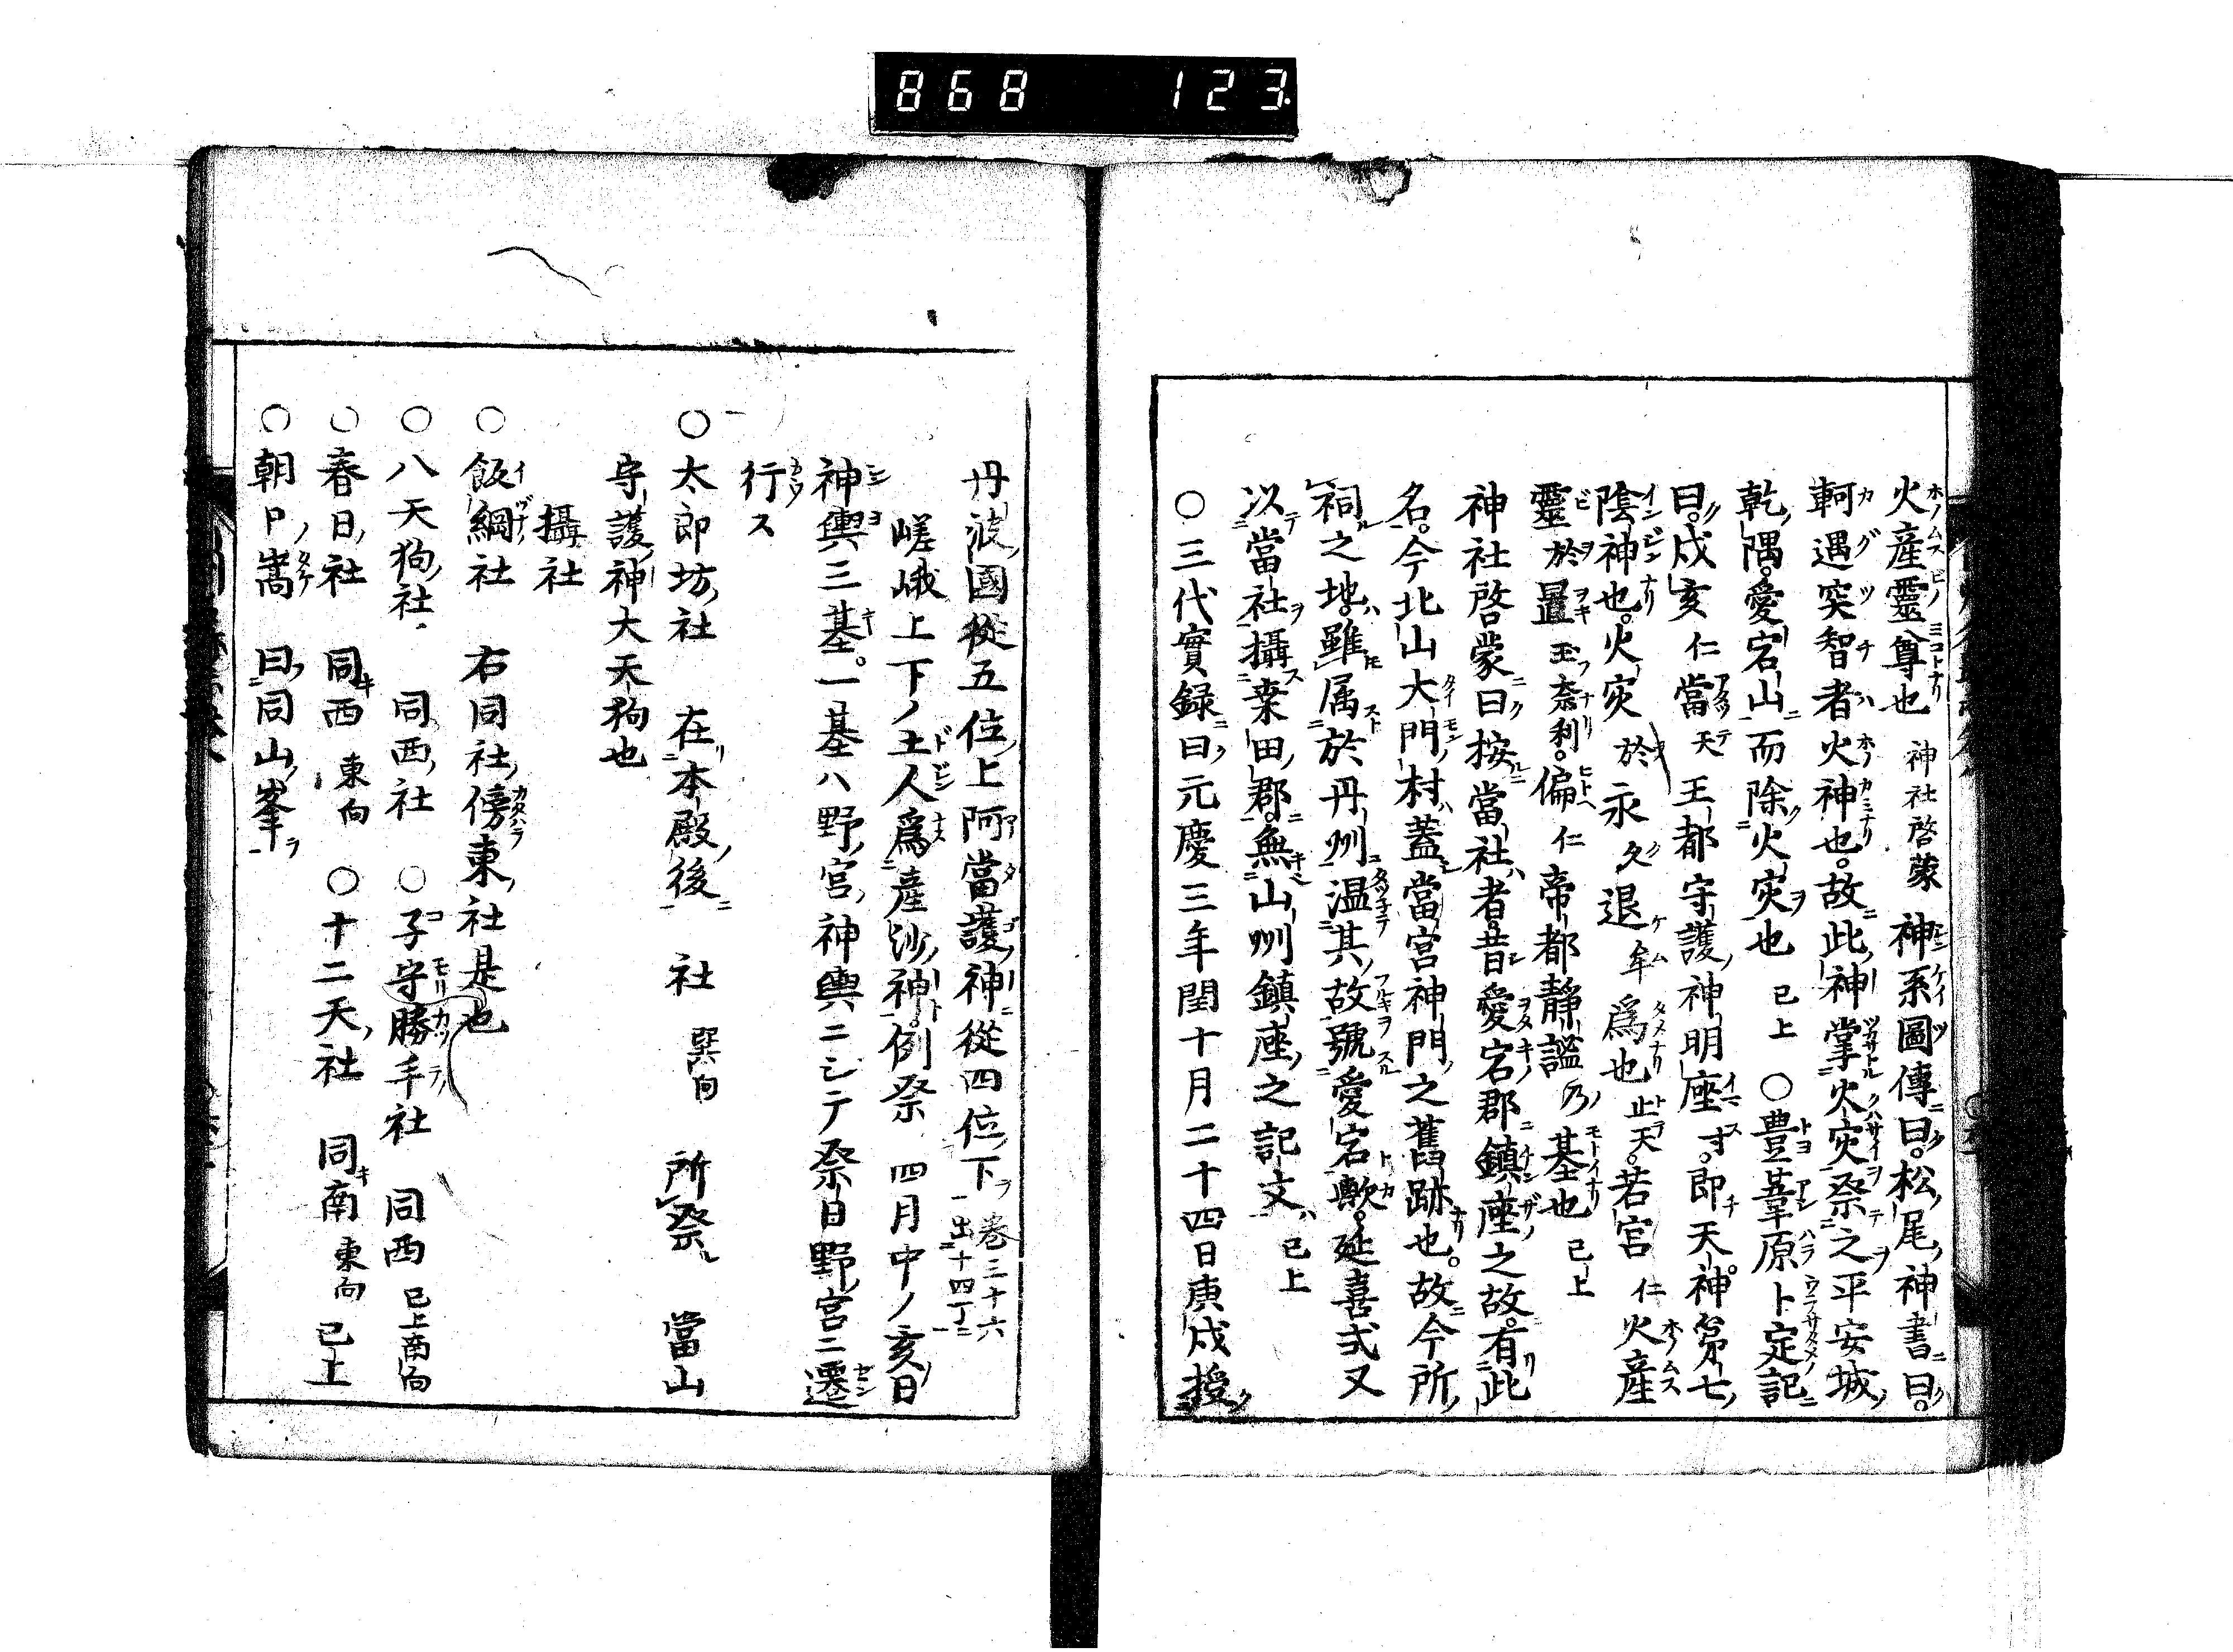 868 123
火産靈尊也 神社啓蒙 神系圖傳曰。松尾神書曰。
軻遇突智者火神也。故此神掌火災祭之平安城
乾隅。愛宕山而除火災也 已上 ○豊葦原卜定記
曰。戌亥仁當天王都守護神明座寸。即天神第七
陰神也。火災於永久退牟爲也止天。若宮仁火産
靈於置玉奈利。偏仁帝都靜謐乃基也 已上
神社啓蒙曰按當社者。昔愛宕郡鎮座之故。有此
名。今北山大門村蓋當宮神門之舊跡也。故今所
祠之地。雖属於丹州温其故號愛宕歟。延喜式又
以當社攝桒田郡。無山州鎮座之記文 已上
○三代實録曰元慶三年閏十月二十四日庚戌授
丹波國從五位上阿當護神從四位下 卷三十六
出十四丁
嵯峨上下ノ土人爲産沙神。例祭 四月中ノ亥日
神輿三基。一基ハ野宮神輿ニシテ祭日野宮ニ遷
行ス
○太郎坊社 在本殿後 社 巽向 所祭 當山
守護神大天狗也
攝社
○飯綱社 右同社傍東社是也
○八天狗社 同西社 ○子守勝手社 同西 已上南向
○春日社 同西 東向 ○十二天社 同南 東向 已上
○朝日嵩 曰同山峯